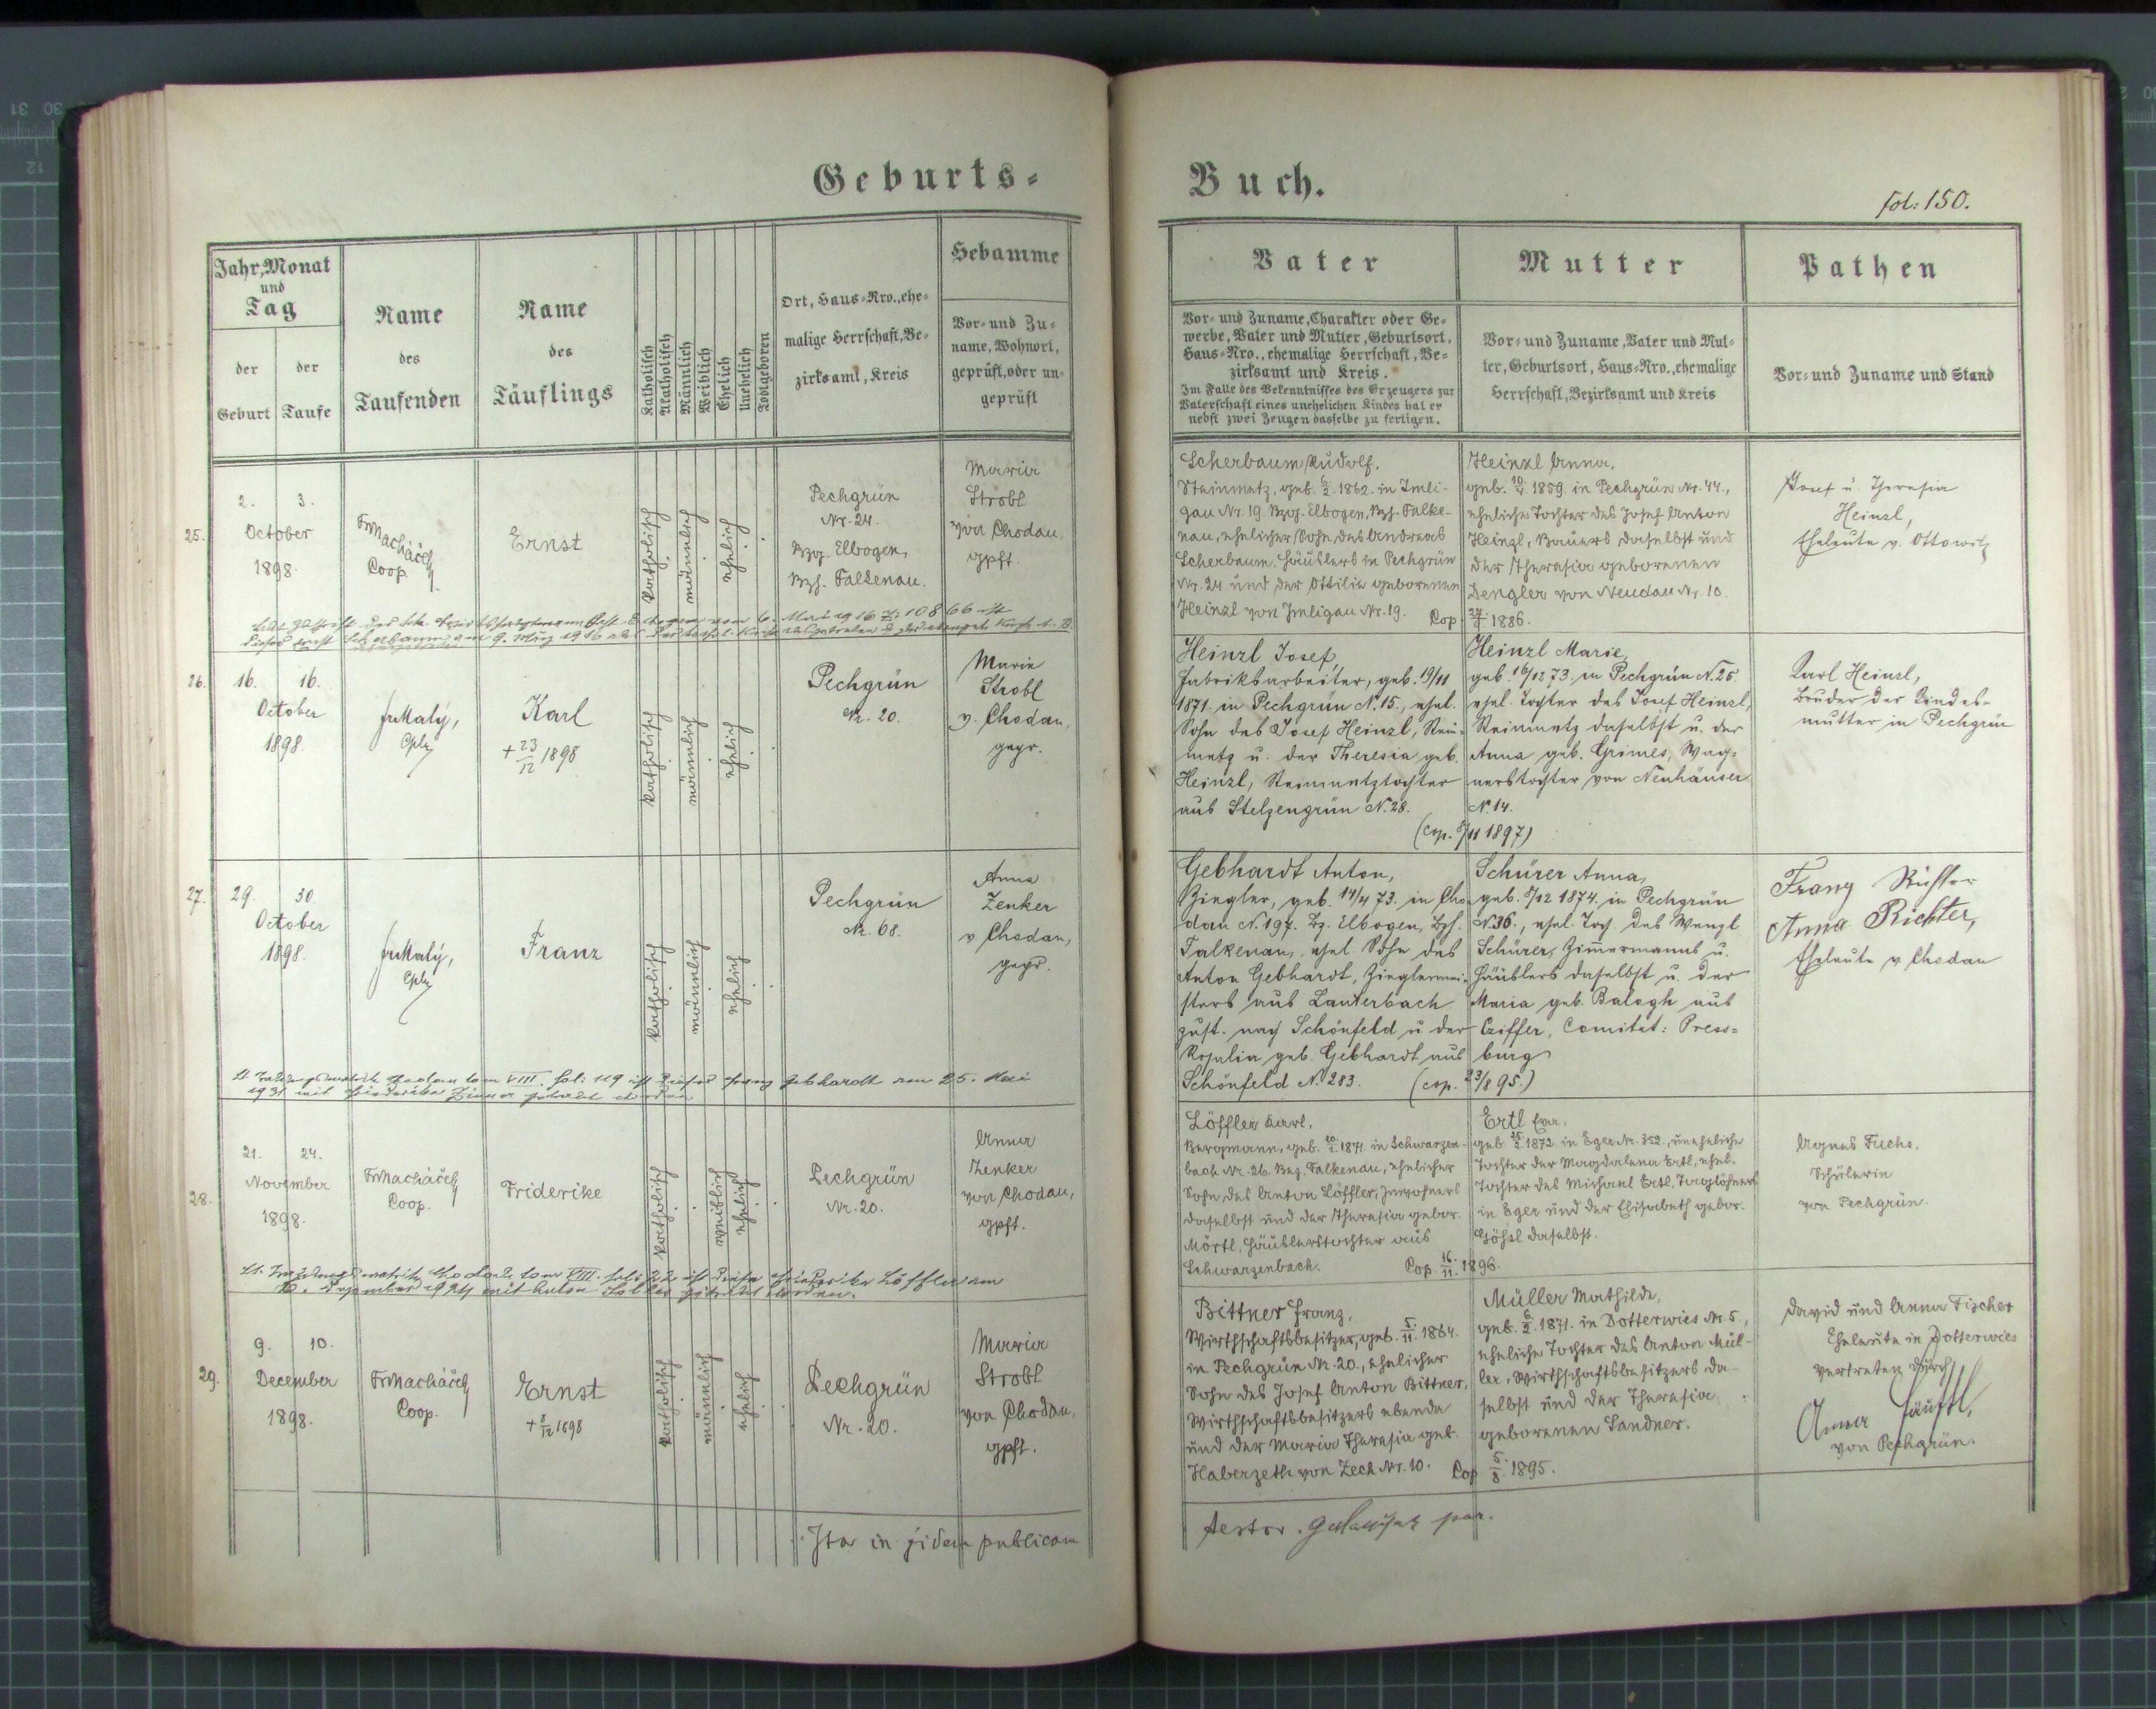 Geburts-
Buch.
fol: 150.
Jahr, Monat
und
Tag
der
Geburt
der
Taufe
Name
des
Taufenden
Name
des
Täuflings
Katholisch
Akatholisch
Männlich
Weiblich
Ehelich
Unehelich
Todtgeboren
Ort, Haus-Nro., ehe-
malige Herrschaft, Be-
zirksamt, Kreis
Hebamme
Vor- und Zu-
name, Wohnort,
geprüft, oder un-
geprüft
Vater
Vor- und Zuname, Charakter oder Ge-
werbe, Vater und Mutter, Geburtsort,
Haus-Nro., ehemalige Herrschaft, Be-
zirksamt und Kreis.
Im Falle des Bekenntnisses des Erzeugers zur
Vaterschaft eines unehelichen Kindes hat er
nebst zwei Zeugen dasselbe zu fertigen.
Mutter
Vor- und Zuname, Vater und Mut-
ter, Geburtsort, Haus-Nro., ehemalige
Herrschaft, Bezirksamt und Kreis
Pathen
Vor- und Zuname und Stand
25.
2. 3.
October
1898.
FrMacháček
Coop.
Ernst
katholisch
männlich
ehelich
Pechgrün
Nr. 24.
Bzg. Elbogen,
Bzh. Falkenau.
Maria
Strobl
von Chodau,
gpft.
Scherbaum Rudolf,
Steinmetz, geb. 6./2. 1862. in Imli-
gau Nr. 19. Bzg. Elbogen, Bzh. Falke-
nau, ehelicher Sohn des Andreas
Scherbaum, Häuslers in Pechgrün
Nr. 24. und der Ottilie geborenen
Heinzl von Imligau Nr. 19.
Heinzl Anna,
geb. 10./4. 1859. in Pechgrün Nr. 44.,
eheliche Tochter des Josef Anton
Heinzl, Bauers daselbst und
der Theresia geborenen
Dengler von Neudau Nr. 10.
Cop. 27/7 1886.
Josef u. Theresia
Heinzl,
Eheleute v. Ottowitz
vom 6. Mai 1916 Z: 10866 ist
dieser Ernst Scherbaum am 9. März 1916 aus der kathol. Kirche ausgetreten
26.
16. 16.
October
1898.
FrMalý,
Cpln
Karl
+ 23/12 1898
katholisch
männlich
ehelich
Pechgrün
Nr. 20.
Marie
Strobl
v. Chodau,
gepr.
Heinzl Josef,
Fabriksarbeiter, geb. 19/11
1871. in Pechgrün N. 15., ehel.
Sohn des Josef Heinzl, Stein-
metz u. der Theresia geb.
Heinzl, Steinmetztochter
aus Stelzengrün N. 28.
Heinzl Marie,
geb. 16/12 73. in Pechgrün N. 25.
ehel. Tochter des Josef Heinzl,
Steinmetz daselbst u. der
Anna geb. Grimes, Wag-
nerstochter von Neuhäuser
N. 14.
(cop. 8/11 1897)
Karl Heinzl,
Bruder der Kindes-
mutter in Pechgrün
27.
29. 30.
October
1898.
FrMalý,
Cpln
Franz
katholisch
männlich
ehelich
Pechgrün
Nr. 68.
Anna
Zenker
v. Chodau,
gepr.
Gebhardt Anton,
Ziegler, geb. 14/4 73. in Cho-
dau N. 197. Bz. Elbogen, Bzh.
Falkenau, ehel. Sohn des
Anton Gebhardt, Zieglermei-
sters aus Lauterbach
zust. nach Schönfeld u. der
Rosalia geb. Gebhardt aus
Schönfeld N. 283.
Schürer Anna,
geb. 8/12 1874. in Pechgrün
N. 36., ehel. Toch. des Wenzl
Schürer, Zimmermanns u.
Häuslers daselbst u. der
Maria geb. Balogh aus
Cziffer, Comitat: Press-
burg
(cop. 23/8 95.)
Franz Richter
Anna Richter,
Eheleute v. Chodau
Lt. Trauungsmatrik Chodau tom VIII. fol: 119 ist dieser Franz Gebhardt am 25. Mai
28.
21. 24.
November
1898.
FrMacháček
Coop.
Friderike
katholisch
weiblich
ehelich
Pechgrün
Nr. 20.
Anna
Zenker
von Chodau,
gpft.
Löffler Karl,
Bergmann, geb. 20./1. 1871. in Schwarzen-
bach Nr. 26. Bzg. Falkenau, ehelicher
Sohn des Anton Löffler, Inwohners
daselbst und der Theresia gebor.
Mörtl, Häuslerstochter aus
Schwarzenbach.
Ertl Eva,
geb. 25./2. 1872. in Eger Nr. 352., uneheliche
Tochter der Magdalena Ertl, ehel.
Tochter des Michael Ertl, Taglöhners
in Eger und der Elisabeth gebor.
daselbst.
Cop. 16./11. 1896.
Agnes Fuchs,
Schülerin
von Pechgrün.
Lt. Trauungsmatrik Chodau tom VIII. fol: 22 ist diese Friederike Löffler am
Dezember 1924 mit Anton getraut worden.
29.
9. 10.
December
1898.
FrMacháček
Coop.
Ernst
+ 8/12 1898
katholisch
männlich
ehelich
Pechgrün
Nr. 20.
Maria
Strobl
von Chodau,
gpft.
Bittner Franz,
Wirthschaftsbesitzer, geb. 5./11. 1864.
in Pechgrün Nr. 20., ehelicher
Sohn des Josef Anton Bittner,
Wirthschaftsbesitzers ebenda
und der Maria Theresia geb.
Haberzeth von Zech Nr. 10.
Müller Mathilde,
geb. 6./2. 1871. in Dotterwies Nr. 5.,
eheliche Tochter des Anton Mül-
ler, Wirthschaftsbesitzers da-
selbst und der Theresia
geborenen Sandner.
Cop. 5./8. 1895.
David und Anna Fischer
Eheleute in Dotterwies
vertreten durch
Anna Häuftl,
von Pechgrün.
Ita in fidem publicam
testor.